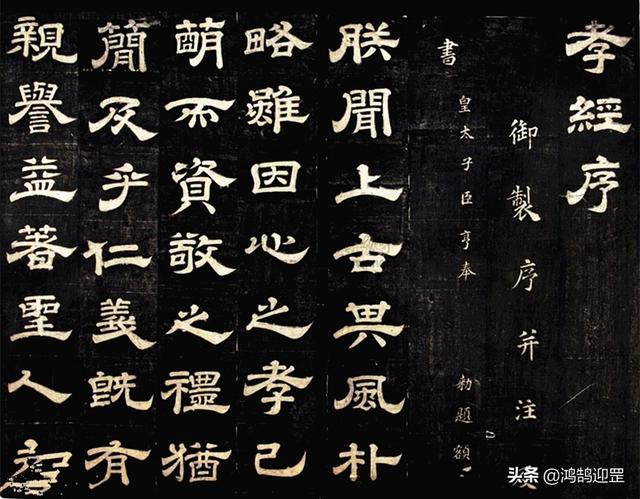 孝經序
御製序并注
書
皇太子臣亨奉 勅題額
朕聞上古其風朴
略雖因心之孝已
萌而資敬之禮猶
簡及乎仁義既有
親譽益著聖人知
头条 @鸿鹄迎罡